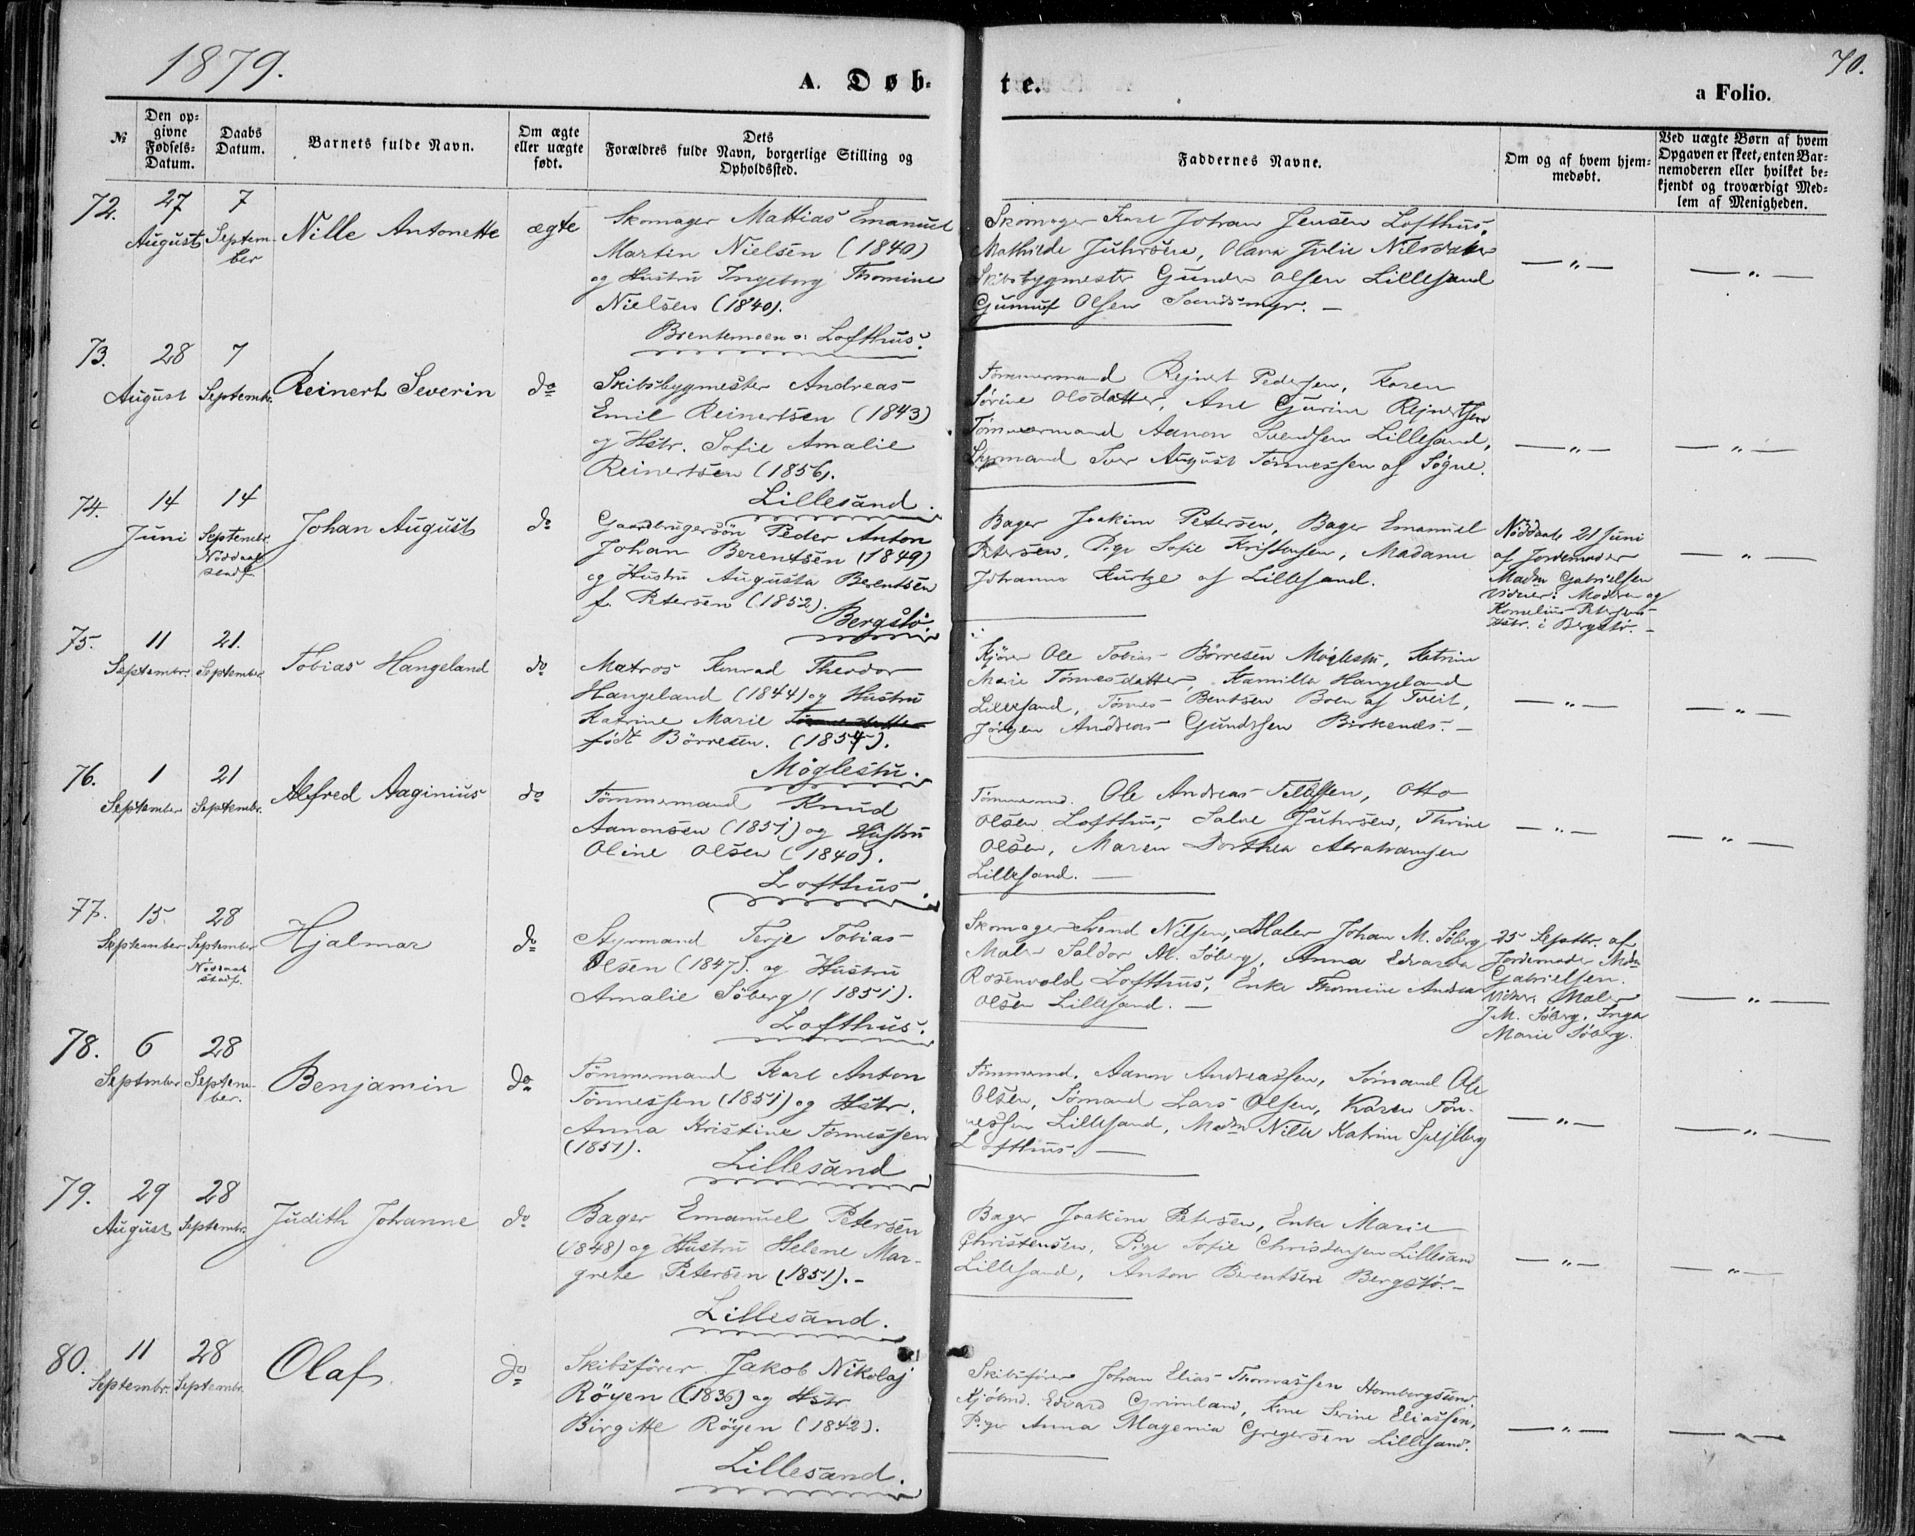 1879.
70.
A. Døb-
te.
a Folio.
№
Den op-
givne
Fødsels-
Datum.
Daabs
Datum.
Barnets fulde Navn.
Om ægte
eller uægte
født.
Dets
Forældres fulde Navn, borgerlige Stilling og
Opholdssted.
Faddernes Navne.
Om og af hvem hjem-
medøbt.
Ved uægte Børn af hvem
Opgaven er skeet, enten Bar-
nemoderen eller hvilket be-
kjendt og troværdigt Med-
lem af Menigheden.
72.
27
August
7
Septem-
ber
Nille Antonette
ægte
Skomager Mattias Emanuel
Martin Nielsen (1840)
og Hustru Ingeborg Thomine
Nielsen (1840).
Brentemoen o: Lofthus.
Skomager Karl Johan Jensen Lofthus,
Mathilde Juhrsene, Olava Julie Nilsdatter
Skibsbygmester Gunder Olsen Lillesand
Gunuf Olsen Sandsmyr. —
— " —
— " —
73.
28
August
7
Septembr.
Reinert Severin
do
Skibsbygmester Andreas
Emil Reinertsen (1843)
og Hstr. Sofie Amalie
Reinertsen (1856).
Lillesand.
Tømmermand Rejnert Pedersen, Karen
Sørine Olsdatter, Ane Gurine Rejnertsen
Tømmermand Aanon Svendsen Lillesand,
Styrmand Iver August Tønnessen af Søgne.
— " —
— " —
74.
14
Juni
14
Septembr.
Nøddaab
stadf.
Johan August
do
Gaardbrugersøn Peder Anton
Johan Berentsen (1849)
og Hustru Augusta Berentsen
f. Petersen (1852).
Bergstø.
Bager Joakim Petersen, Bager Emanuel
Petersen, Pige Sofie Kristensen, Madame
Johanna Kurtze af Lillesand.
Nøddaab 21 Juni
af Jordemoder
Madm Gabrielsen
Vidner: Moderen og
Kornelius Petersens
Hstr. i Bergstø. —
— " —
75.
11
Septembr.
21.
September
Tobias Hangeland
do
Matros Konrad Theodor
Hangeland (1844) og Hustru
Katrine Marie
født Børresen. (1854).
Møglestu.
Kjører Ole Tobias Børresen Møglestu, Katrine
Marie Tønnesdatter, Kamilla Hangeland
Lillesand, Tønnes Bentsen Boen af Tveit,
Jørgen Andreas Gundersen Birkenes. —
— " —
— " —
76.
1
September
21
Septembr.
Alfred Aaginius
do
Tømmermand Knud
Aanonsen (1851) og Hustru
Oline Olsen (1840).
Lofthus.
Tømmermd. Ole Andreas Tellefsen, Otto
Olsen Lofthus, Salve Juhrsen, Thrine
Olsen, Maren Dorthea Abrahamsen
Lillesand. —
— " —
— " —
77.
15.
September
28
September
Nøddaab
stadf.
Hjalmar
do
Styrmand Terje Tobias
Olsen (1847). og Hustru
Amalie Söberg (1851).
Lofthus.
Skomager Svend Nilsen, Maler Johan M. Söberg
Maler Saldor M. Söberg, Anna Edvarda
Rosenvold Lofthus, Enke Thomine Andrea
Olsen Lillesand. —
25 Septbr. af
Jordemoder Madm
Gabrielsen.
Vidner: Maler
J. M. Söberg, Inga
Marie Söberg.
— " —
78.
6
September
28
Septem-
ber.
Benjamin
do
Tömmermand Karl Anton
Tönnessen (1851) og Hstr.
Anna Kristine Tönnessen
(1851).
Lillesand
Tömmermd. Aanon Andreassen, Sömand Ole
Olsen, Sömand Lars Olsen, Karen Tön-
nessen Lillesand, Madm Nille Katrine Spejlberg
Lofthus. —
— " —
— " —
79.
29
August
28
Septembr.
Judith Johanne
do
Bager Emanuel Petersen
(1848) og Hustru Helene Mar-
grete Petersen (1851). —
Lillesand.
Bager Joakim Petersen, Enke Marie
Christensen, Pige Sofie Christensen Lillesand
Lillesand, Anton Berentsen Bergstø. —
— " —
— " —
80.
11
Septembr.
28
Septembr.
Olaf
do
Skibsförer Jakob Nikolaj
Röyen (1836) og Hstr
Birgitte Röyen (1842).
Lillesand.
Skibsförer Johan Elias Thomassen Homborgsund,
Kjöbmd. Edvard Grimland, Kone Serine Eliassen,
Pige Anna Magenia Gregersen Lillesand.
— " —
— " —